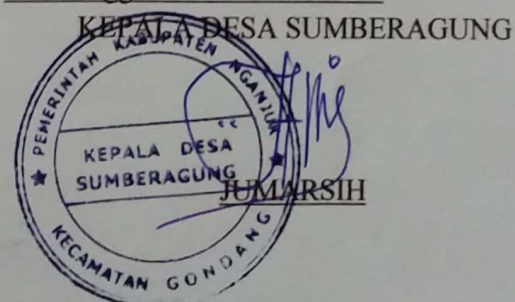 KEPALA DESA SUMBERAGUNG
PEMERINTAH KABUPATEN NGANJUK
KEPALA DESA
SUMBERAGUNG
KECAMATAN GONDANG
JUMARSIH